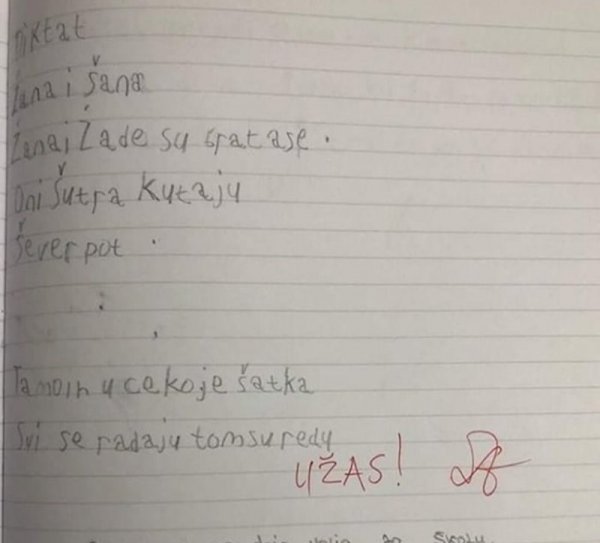 Diktat
Žana i Šana
Žana i Žade su spatase.
Oni Šutra Kutaju
Šever pot .
:
,
Tamoih u cekoje šatka
Svi se radaju tomsuredu
UŽAS!